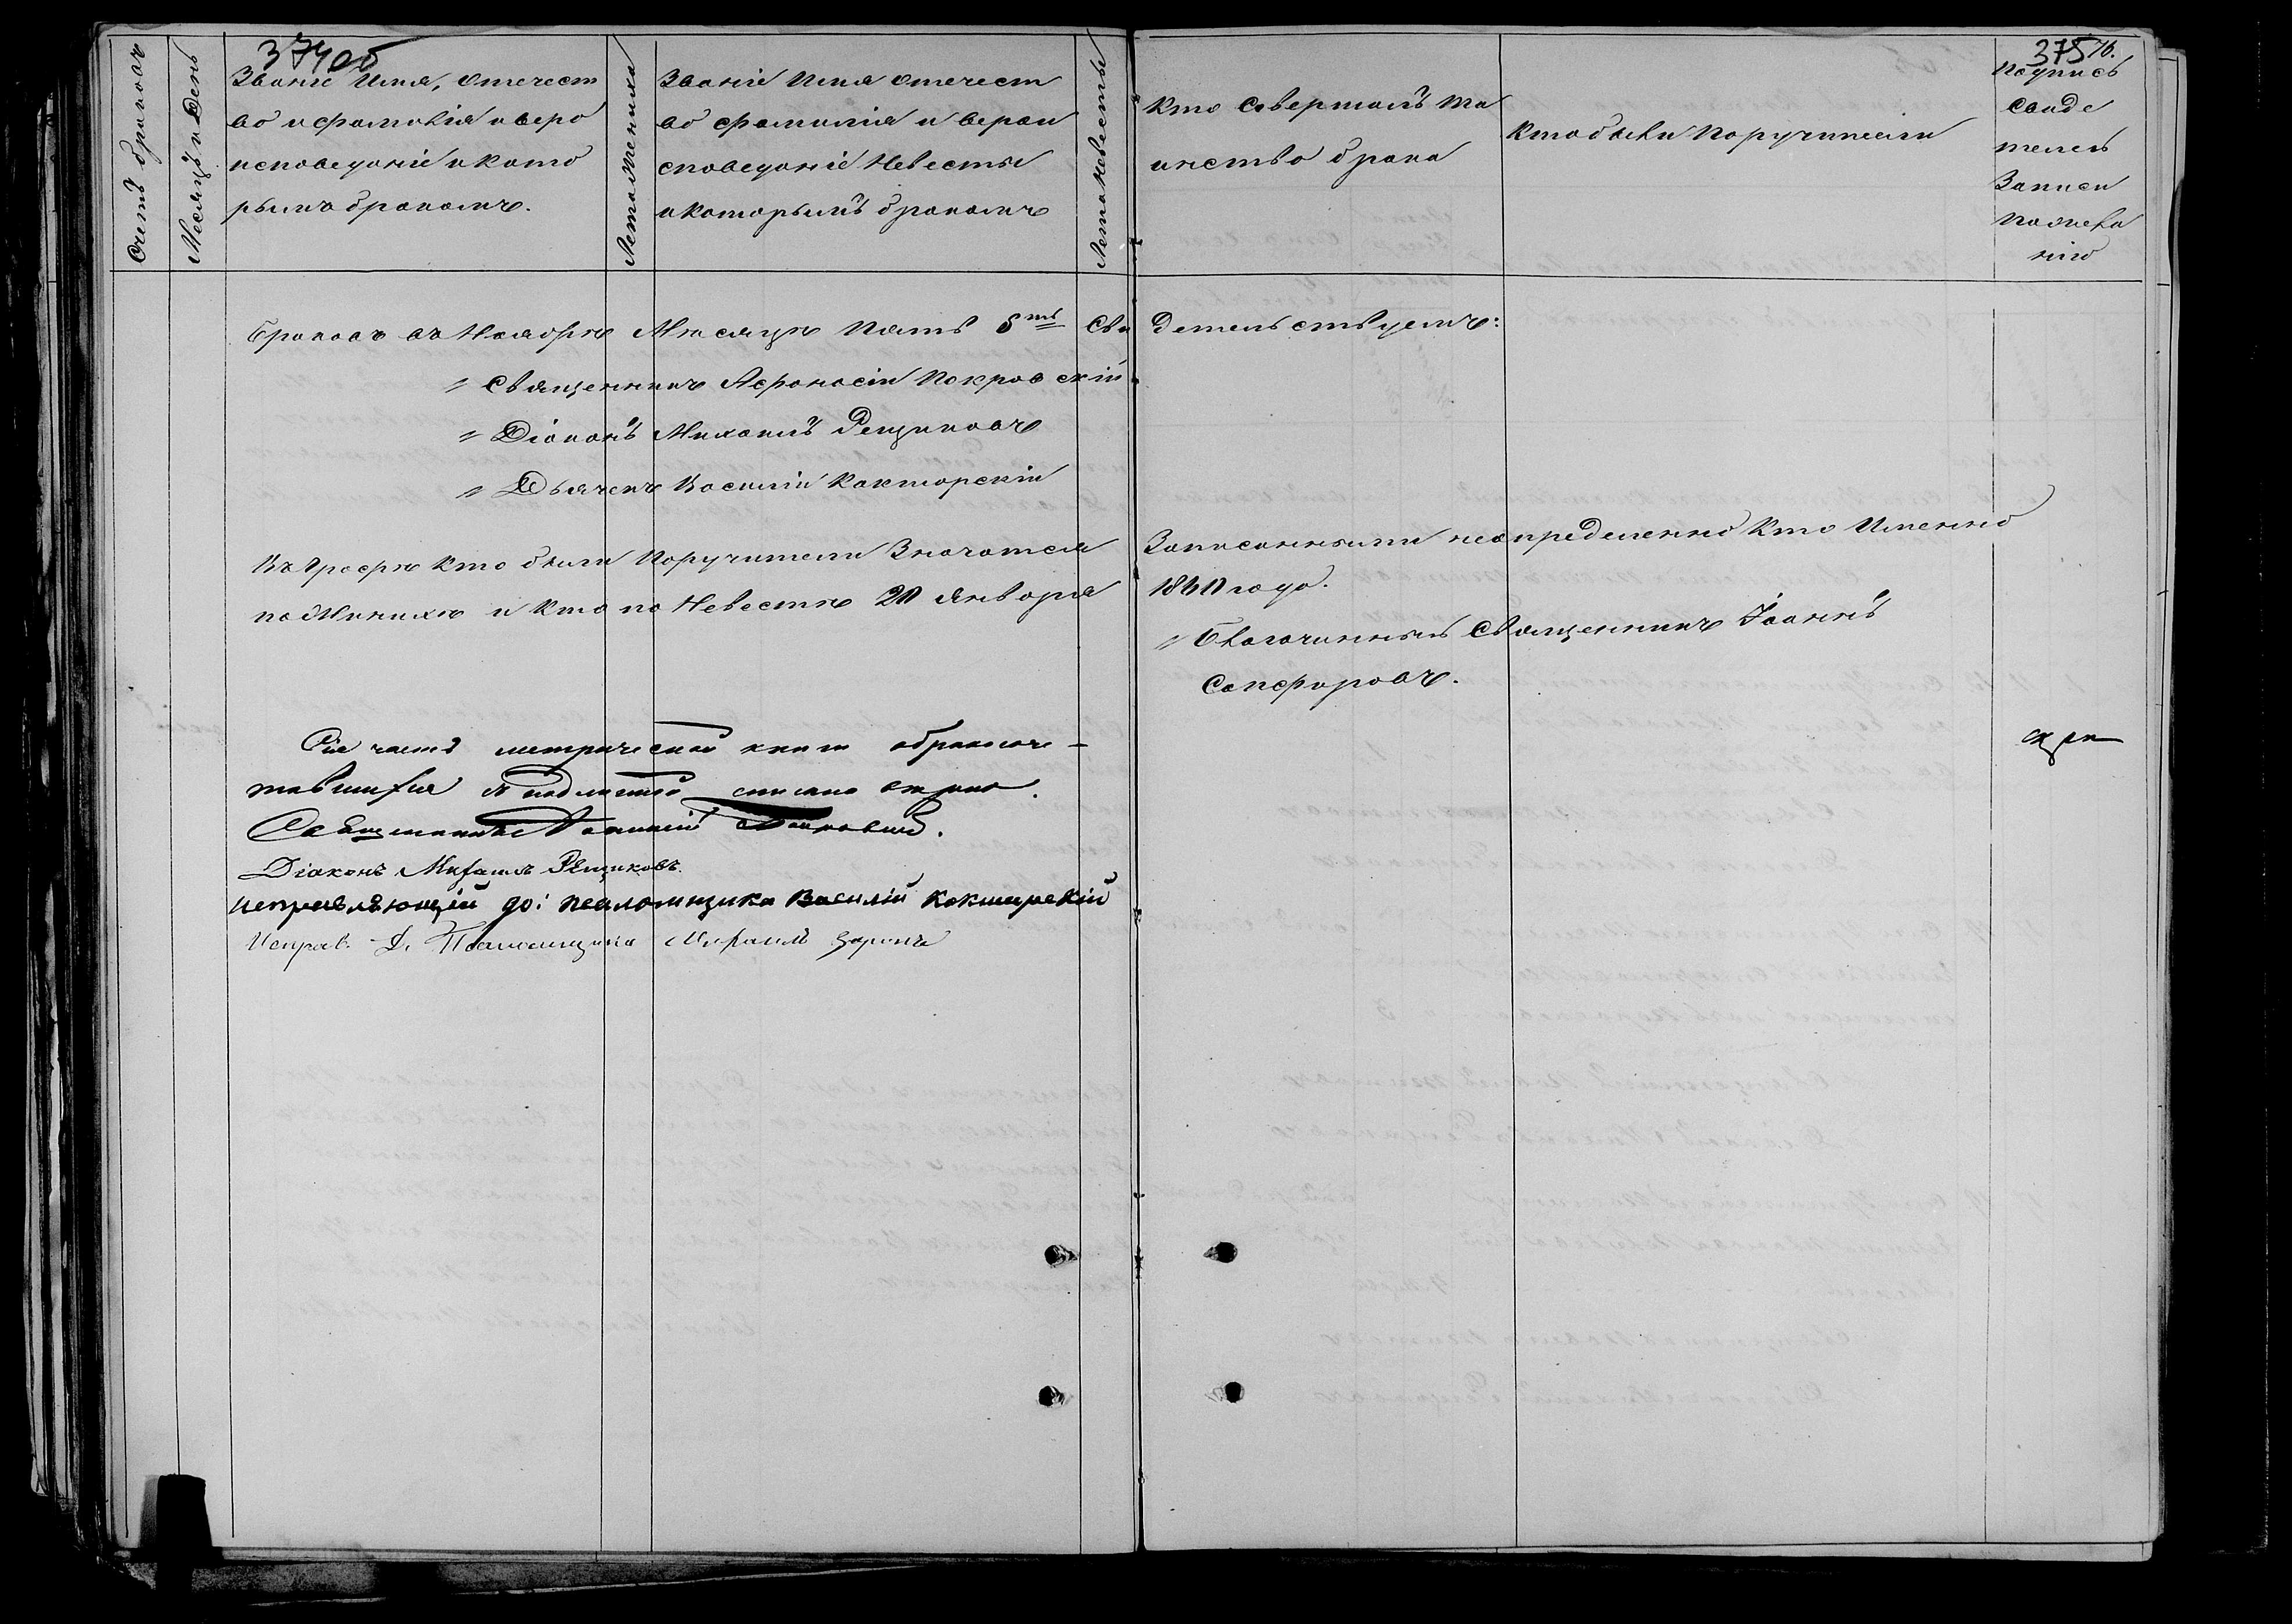 374об
375
76.
Счетъ браковъ
Месяцъ и День
Званіе Имя, отечест
во и фамилія и веро
исповеданіе и кото
рымъ бракомъ.
Лета Жениха
Званіе Имя отечест
во фамилія и верои
споведаніе Невесты
и которымъ бракомъ
Лета Невесты
Кто Совершалъ та
инство брака
Кто были Поручители
Подпись
Свиде
телей
Записи
По желa
нію
Браковъ въ Ноябрѣ Мѣсяцѣ Пять 5ть Сви детельствуемъ:
" Священникъ Афонасій Покровскій
" Діаконъ Михаилъ Рещиковъ
" Дьячекъ Василій Кокшорскій
Въ Графѣ Кто были Поручители Значатся Записанными неопределенно Кто Именно
по Жинихѣ и Кто по Невестѣ 20 Января 1840 года.
" Благочинный Священникъ Іоаннъ
Сапфировъ.
Сія часть метрической книги о бракосоче-
тавшихся съ подлинной списана верно.
Священникъ
Діаконъ Михаилъ Рѣщиковъ.
Исправляющій до: псаломщика Василій Кокшарскій
Исправ. Д. Псаломщика Михаилъ